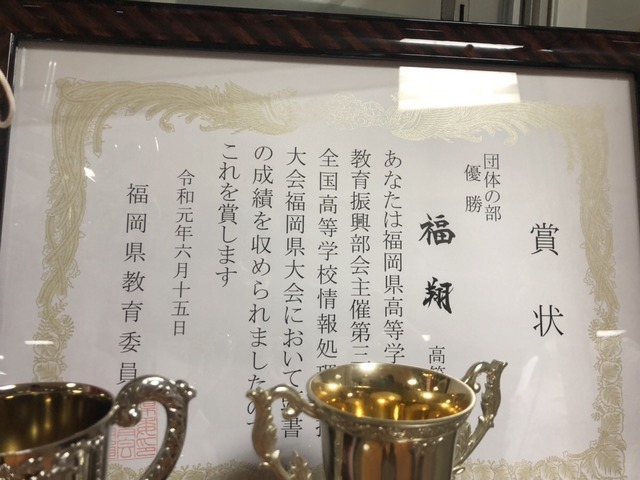 賞状
団体の部
優勝
福翔 高等
あなたは福岡県高等学
教育振興部会主催第三
全国高等学校情報処理
大会福岡県大会において
の成績を収められましたので
これを賞します
令和元年六月十五日
福岡県教育委員